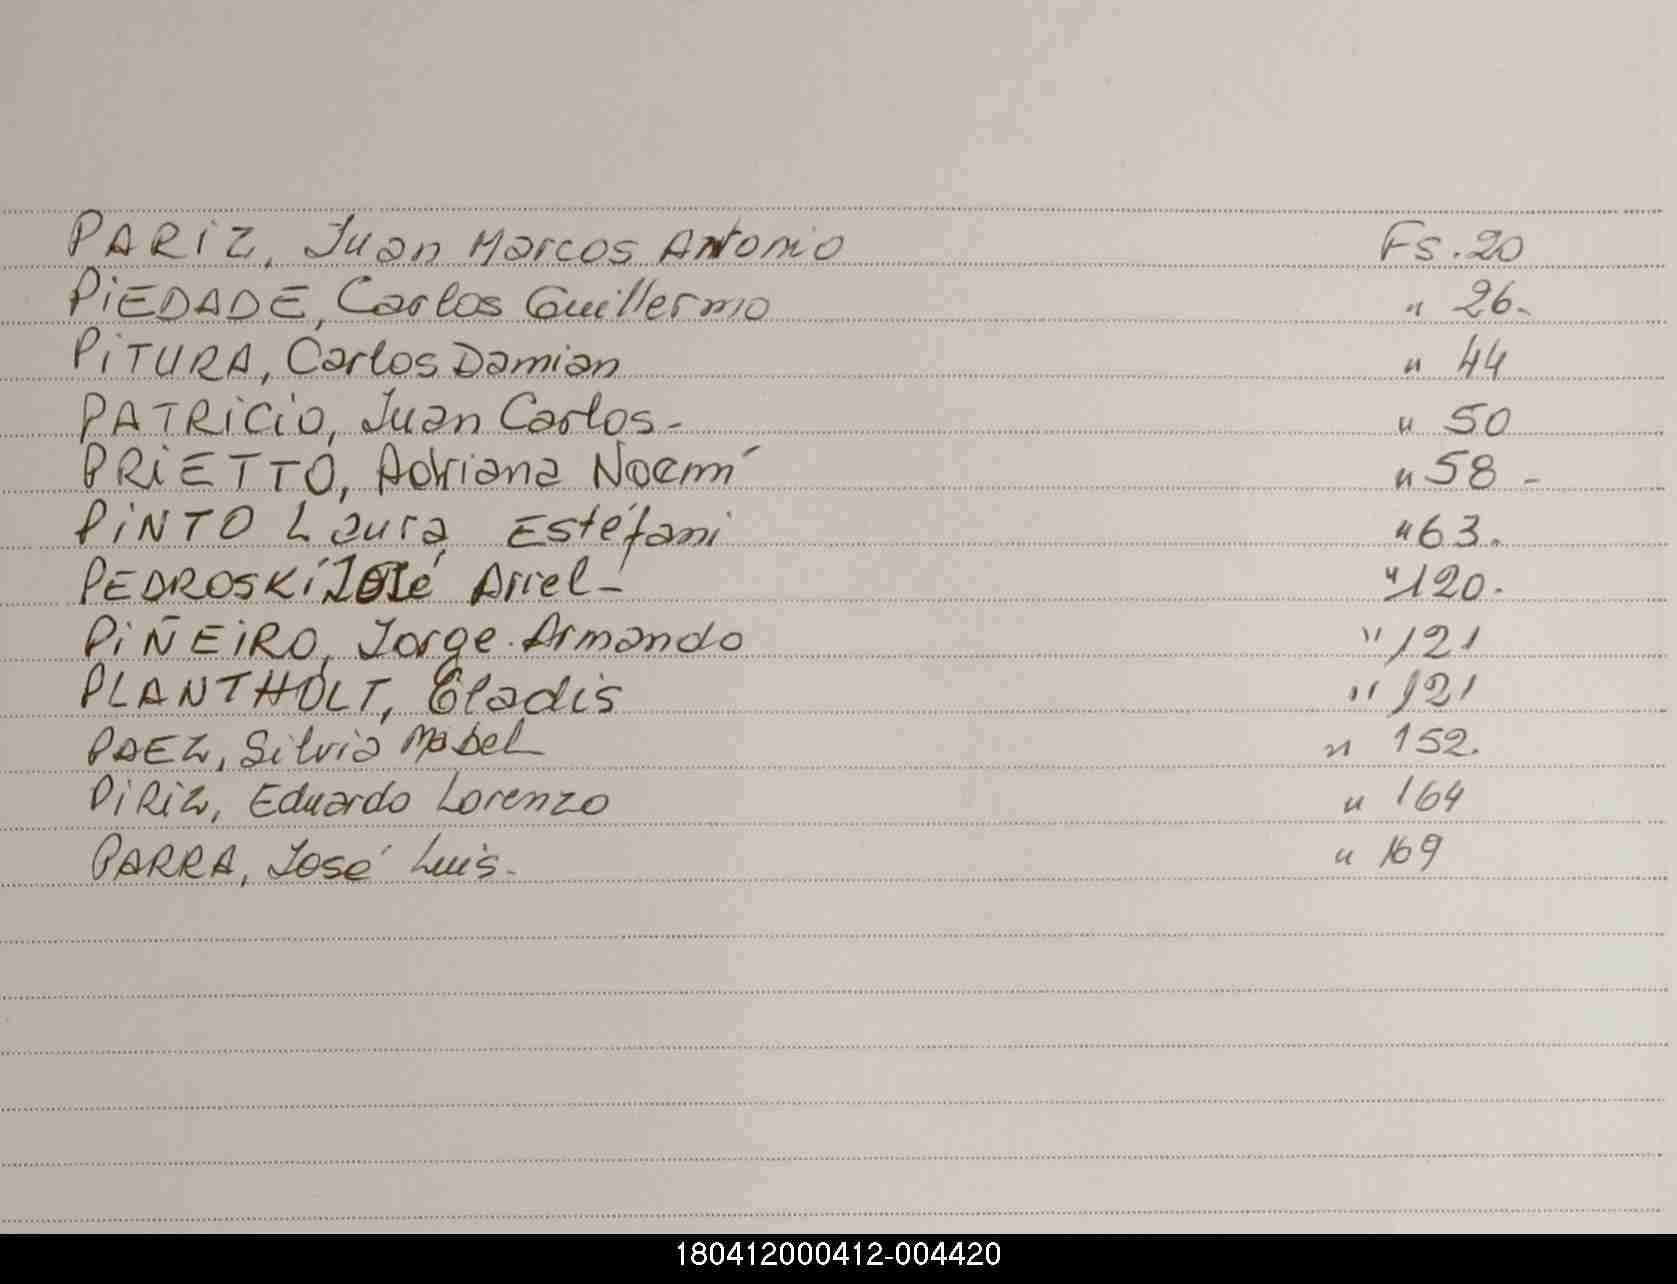 PARIZ, Juan Marcos Antonio Fs. 20
PIEDADE, Carlos Guillermo " 26-
PITURA, Carlos Damian " 44
PATRICIO, Juan Carlos- " 50
PRIETTO, Adriana Noemí " 58 -
PINTO Laura, Estéfani " 63.
PEDROSKI, José Ariel- " 120.
PIÑEIRO, Jorge Armando " 121
PLANTHOLT, Gladis " 121
PAEZ, Silvia Mabel " 152.
PIRIZ, Eduardo Lorenzo " 164
PARRA, José Luis. " 169
180412000412-004420